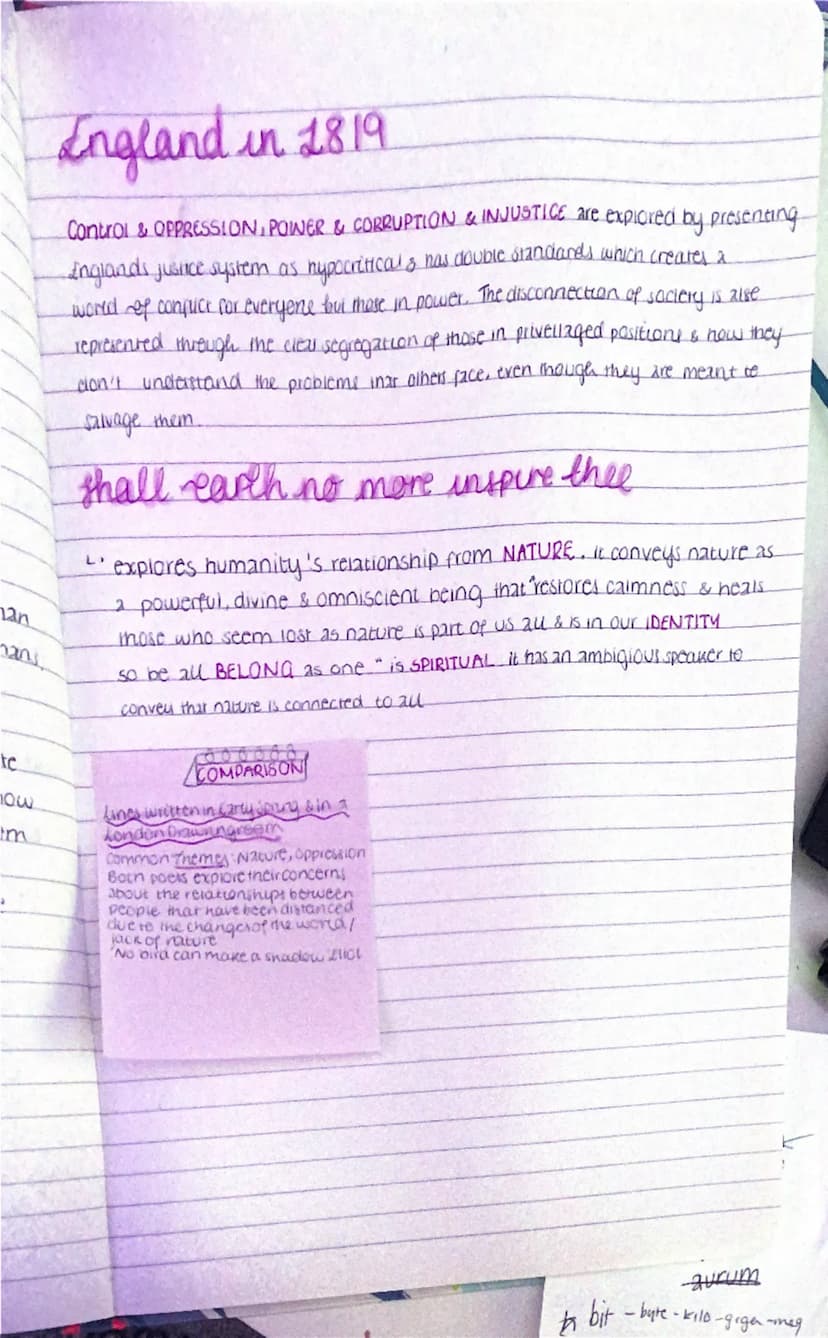 England in 1819
Control & OPPRESSION, POWER & CORRUPTION & INJUSTICE are explored by presenting
Englands justice system as hypocritical & has double standards which creates a
world of conflict for everyone but those in power. The disconnection of society is also
represented through the clear segregation of those in privellaged positions & how they
don't understand the problems that others face, even though they are meant to
salvage them.
shall earth no more inspire thee
explores humanity's relationship from NATURE. it conveys nature as
a powerful, divine & omniscient being that "restores calmness & heals
those who seem lost as nature is part of us all & is in our IDENTITY
so be all BELONG as one" is SPIRITUAL it has an ambigious speaker to
convey that nature is connected to all
COMPARISON
Lines written in Early Spring & in a
London Drawingroom
Common Themes: Nature, Oppression
Both poets explore their concerns
about the relationships between
people that have been distanced
due to the changes of the world/
lack of nature
'No bird can make a shadow' Eliot
han
hans,
te
how
aurum
bit - byte - kilo - giga - meg